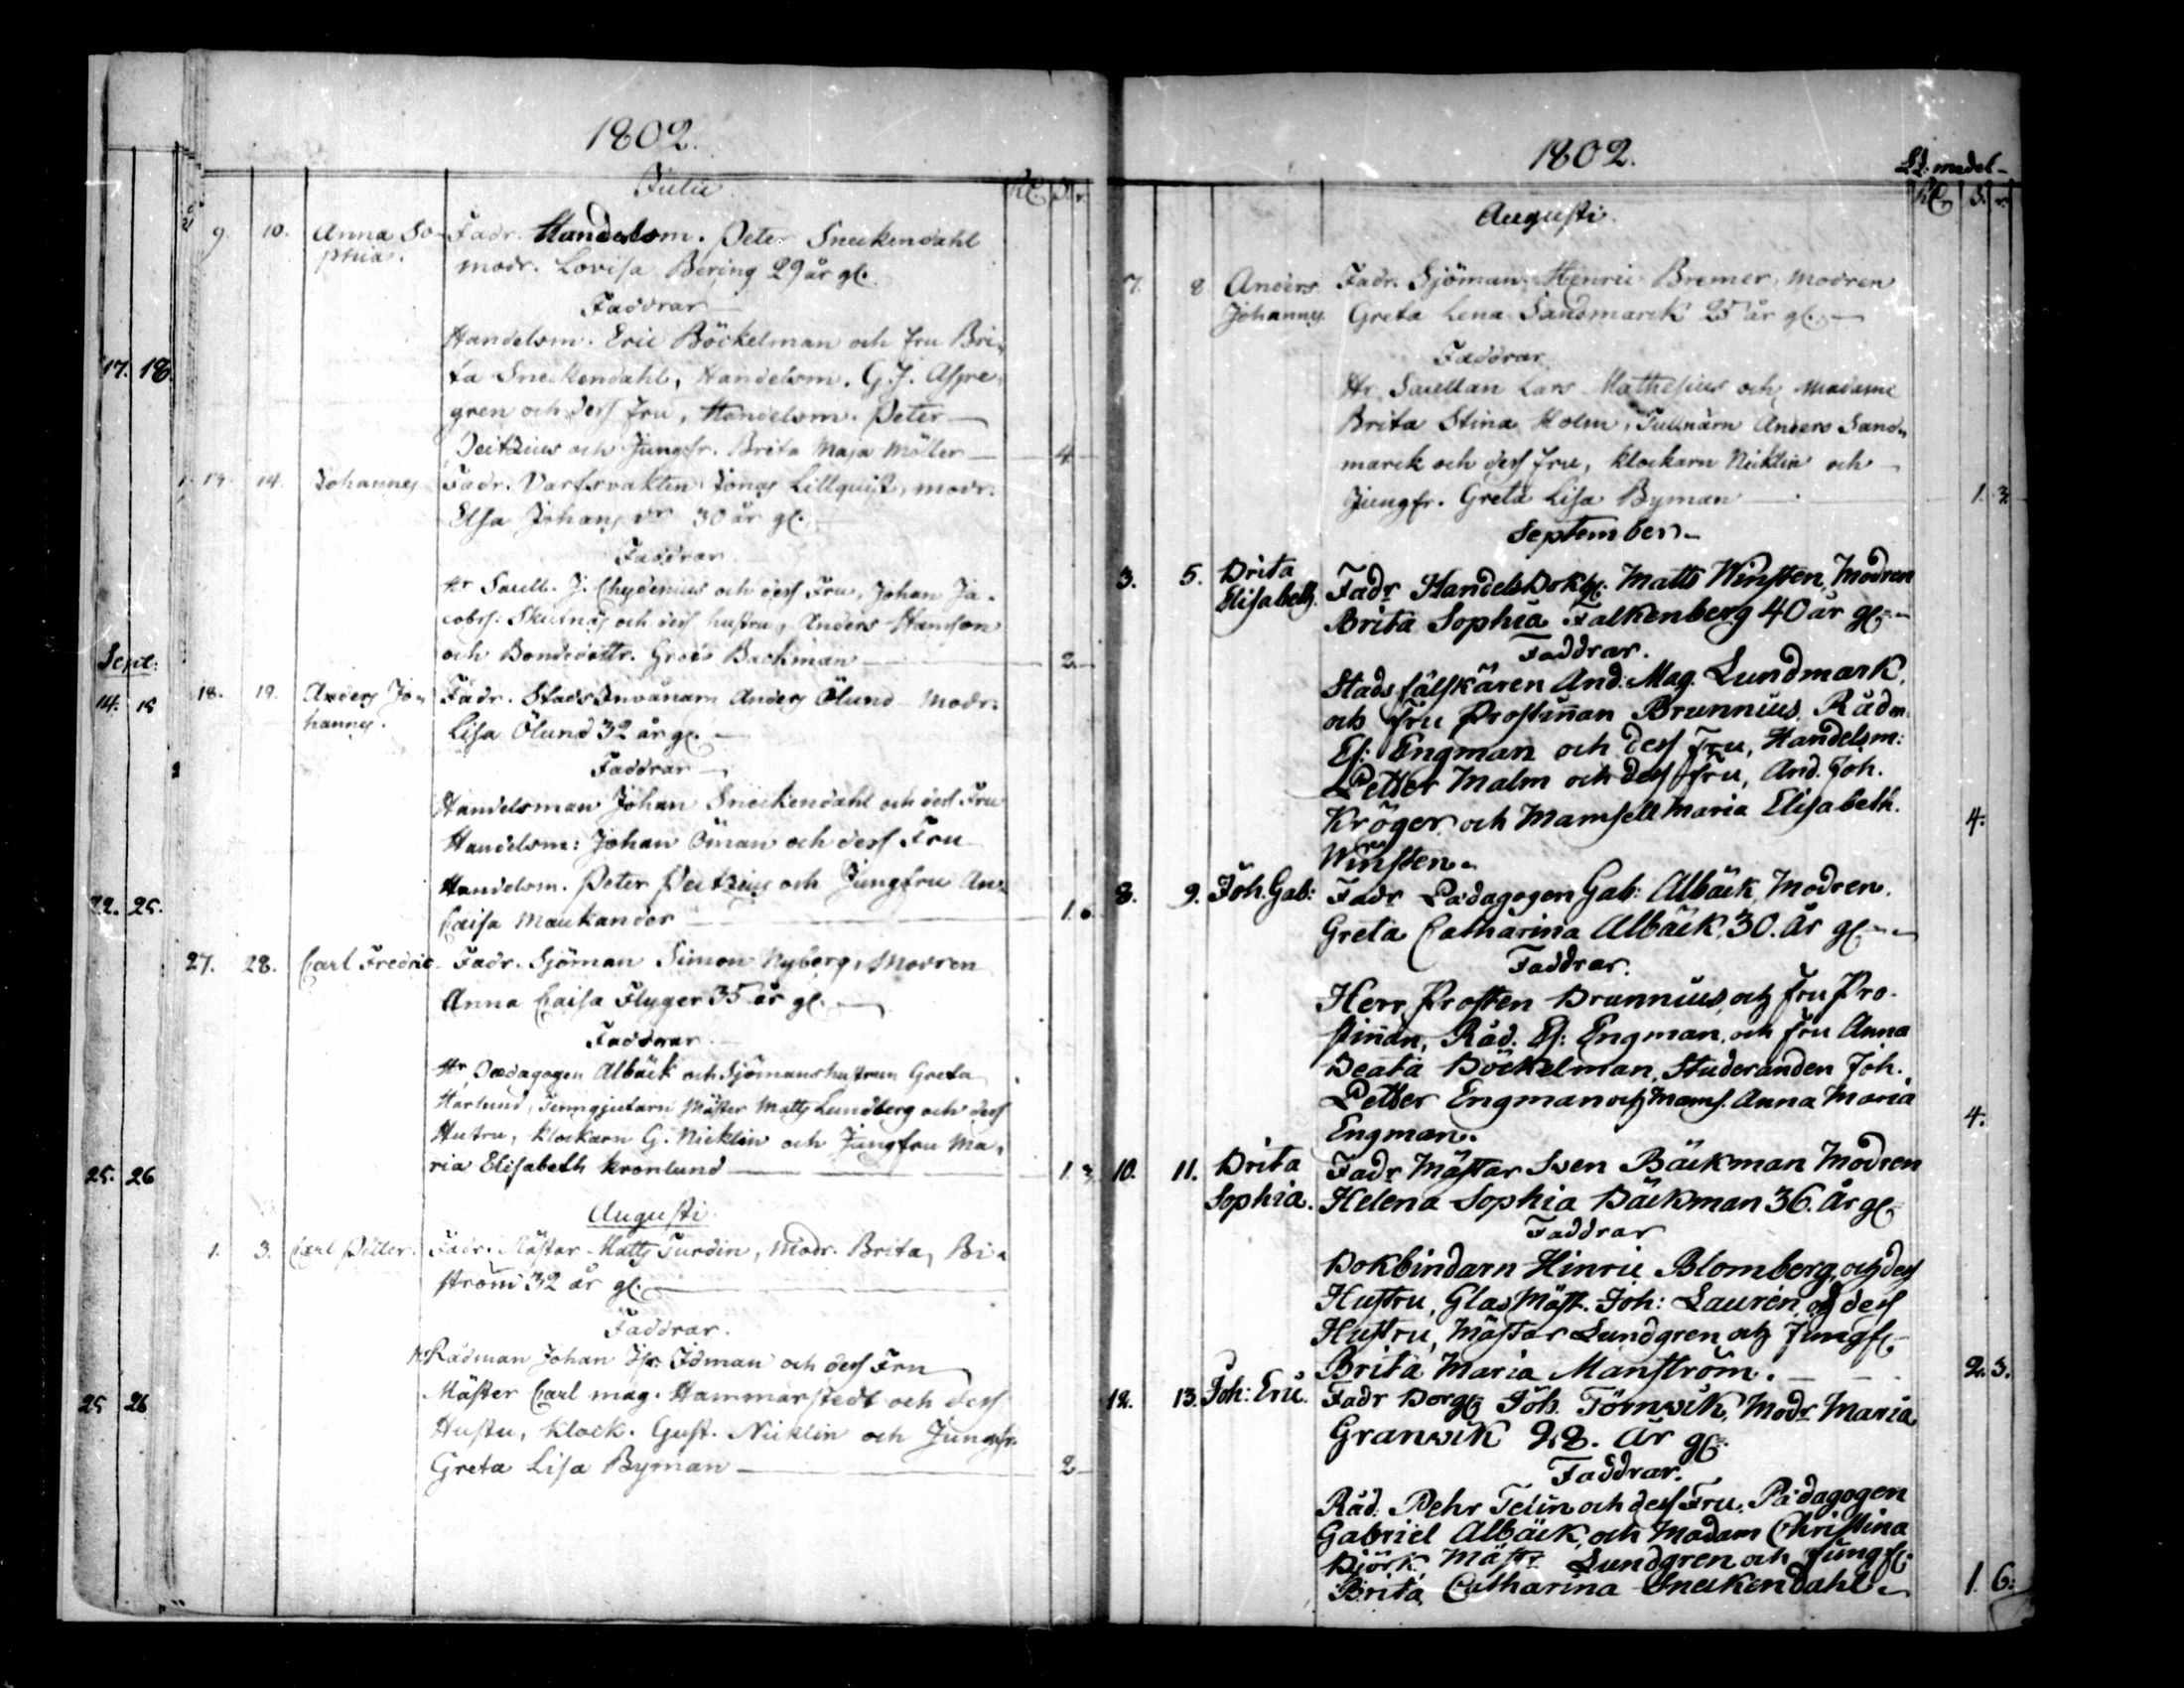 17. 18.
Sept:
14. 15
22. 25.
25. 26
25 26
1802.
Julii
9. 10. Anna So- Fadr. Handelsm. Peter Sneckendahl
phia. modr. Lovisa Bering 29 år gl.
Faddrar
Handelsm. Eric Böckelman och fru Bri-
ta Sneckendahl, Handelsm. G. J. Aspre-
gren och dess fru, Handelsm. Peter
Peitzius och Jungfr. Brita Maja Möller 4
13. 14. Johannes Fadr. Varfsvakten Jonas Lillquist, modr.
Elsa Johans dr 30 år gl.
Faddrar
Hr Saull. J. Chydenius och dess Fru, Johan Ja-
cobss: Skutnäs och dess hustru, Anders Hanson
och Bondedottr. Backman 2
18. 19. Anders Jo- Fadr. Stads Invånarn Anders Ölund Modr.
hannes. Lisa Ölund 32 år gl.
Faddrar
Handelsman Johan Sneckendahl och dess Fru
Handelsm: Johan Öman och dess Fru
Handelsm. Peter Peitzius och Jungfru An-
Caisa Maukander 1.
27. 28. Carl Fredric Fadr. Sjöman Simon Nyberg, Modren
Anna Caisa Flyger 35 år gl.
Faddrar
Hr Pædagogen Albäck och Sjömanshustrun Greta
Harlund, Tenngjutarn Mäster Matts Lundberg och dess
Hustru, klockarn G. Nicklin och Jungfru Ma-
ria Elisabeth kronlund 1. 3.
Augusti
1. 3. Carl Petter. Fadr. Mästar Matts Turdin, Modr. Brita, Bi-
ström 32 år gl.
Faddrar.
Hr Rådman Johan Idman och dess Fru
Mäster Carl Mag. Hammarstedt och dess
Hustu, klock. Gust. Nicklin och Jungfr.
Greta Lisa Byman 2
1802.
medel-
Augusti
7. 8 Anders Fadr. Sjöman Henric Bremer, Modren
Johannes. Greta Lena Sandmarck 25 år gl.
Faddrar
Hr Saullan Lars Mathesius och Madame
Brita Stina Holm, Tullnärn Anders Sand-
marck och dess fru, klockarn Nicklin och
Jungfr. Greta Lisa Byman 1. 3.
September
3. 5. Brita Fadr Handels Bokh. Matts Winsten, Modren
Elisabeth. Brita Sophia Falkenberg 40 år gl.
Faddrar.
Stads fältskären And. Mag. Lundmark,
och fru Prostinnan Brunnius, Rådm.
Es: Engman och dess Fru, Handelsm:
Petter Malm och dess Fru, And. Joh.
Kröger och Mamsell Maria Elisabeth. 4.
Winsten.
8. 9. Joh. Gab: Fadr Pædagogen Gab: Albäck, Modren
Greta Catharina Albäck, 30. år gl.
Faddrar.
Herr Prosten Brunnius, och fru Pro-
stinnan, Råd. Es: Engman, och fru Anna
Beata Böckelman, Studeranden Joh.
Petter Engman och Mams. Anna Maria 4.
Engman.
10. 11. Brita Fadr Mästar Sven Bäckman Modren
Sophia. Helena Sophia Bäckman 36. år gl.
Faddrar
Bokbindarn Hinric Blomberg, och dess
Hustru, Glas Mäst. Joh: Laurén och dess
Hustru, Mästar Lundgren och Jungf.
Brita Maria Manström. 2. 3.
12. 13. Joh: Eric. Fadr Borg. Joh. Törnwik, Modr Maria
Granwik 28. År gl.
Faddrar.
Råd. Pehr Telin och dess Fru. Pædagogen
Gabriel Albäck, och Madam Christina
Björk, Mästr Lundgren och Jungf.
Brita Catharina Sneckendahl. 1. 6.